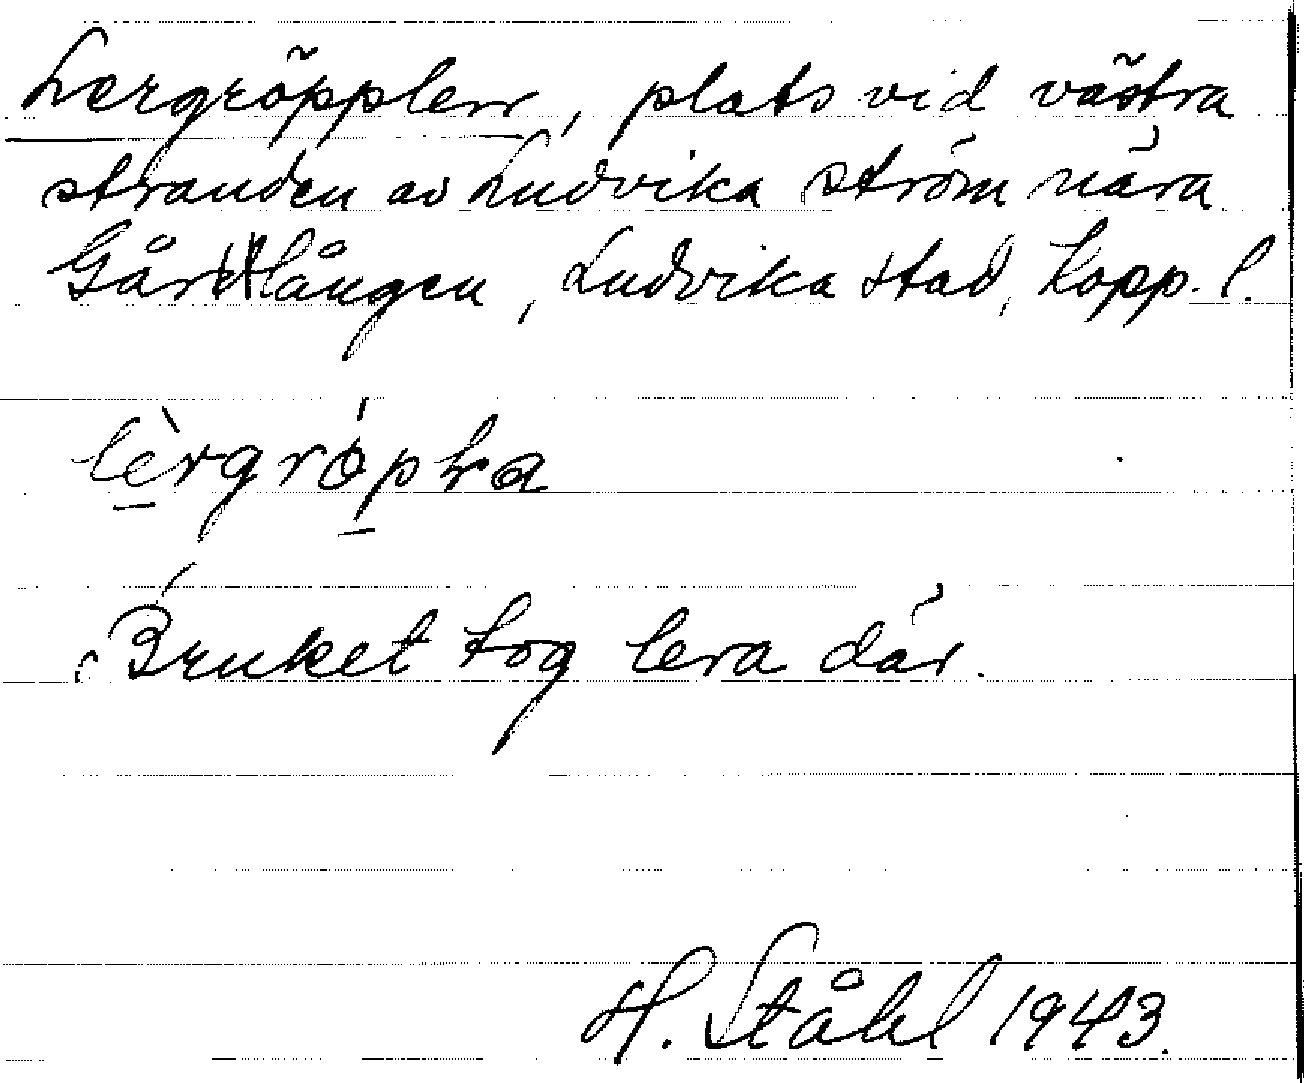 Lergröpplerr, plats vid västra
stranden av Ludvika ström nära
Gårdlången, Ludvika stad, Kopp. l.
lèrgrópḷa
Bruket tog lera där.
H. Ståhl 1943.